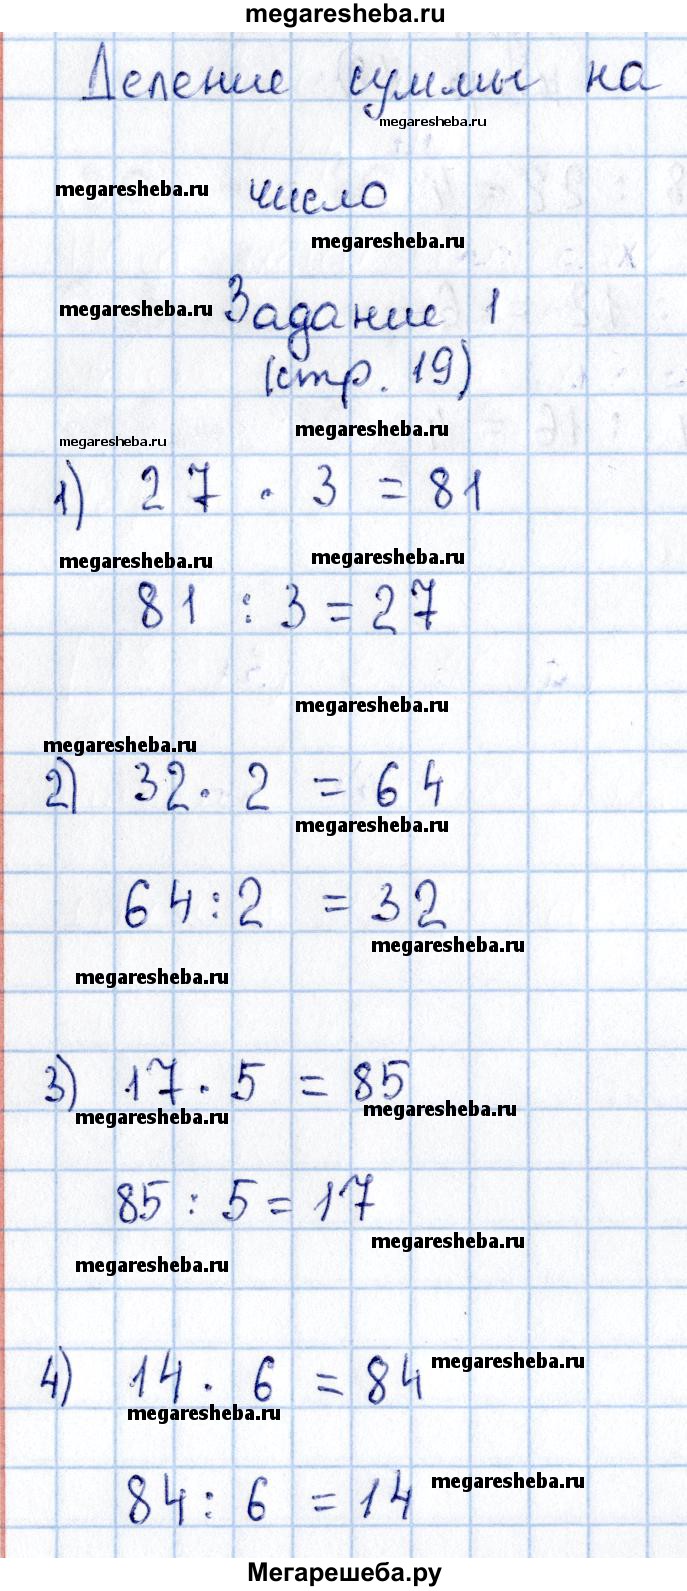 megaresheba.ru
Деление суммы на
megaresheba.ru
megaresheba.ru число
megaresheba.ru
megaresheba.ru Задание 1
(стр. 19)
megaresheba.ru
megaresheba.ru
1) 27 · 3 = 81
megaresheba.ru megaresheba.ru
81 : 3 = 27
megaresheba.ru
megaresheba.ru
2) 32 · 2 = 64
megaresheba.ru
64 : 2 = 32
megaresheba.ru
megaresheba.ru
3) 17 · 5 = 85
megaresheba.ru megaresheba.ru
85 : 5 = 17
megaresheba.ru
megaresheba.ru
4) 14 · 6 = 84 megaresheba.ru
megaresheba.ru
84 : 6 = 14 megaresheba.ru
Мегарешеба.ру